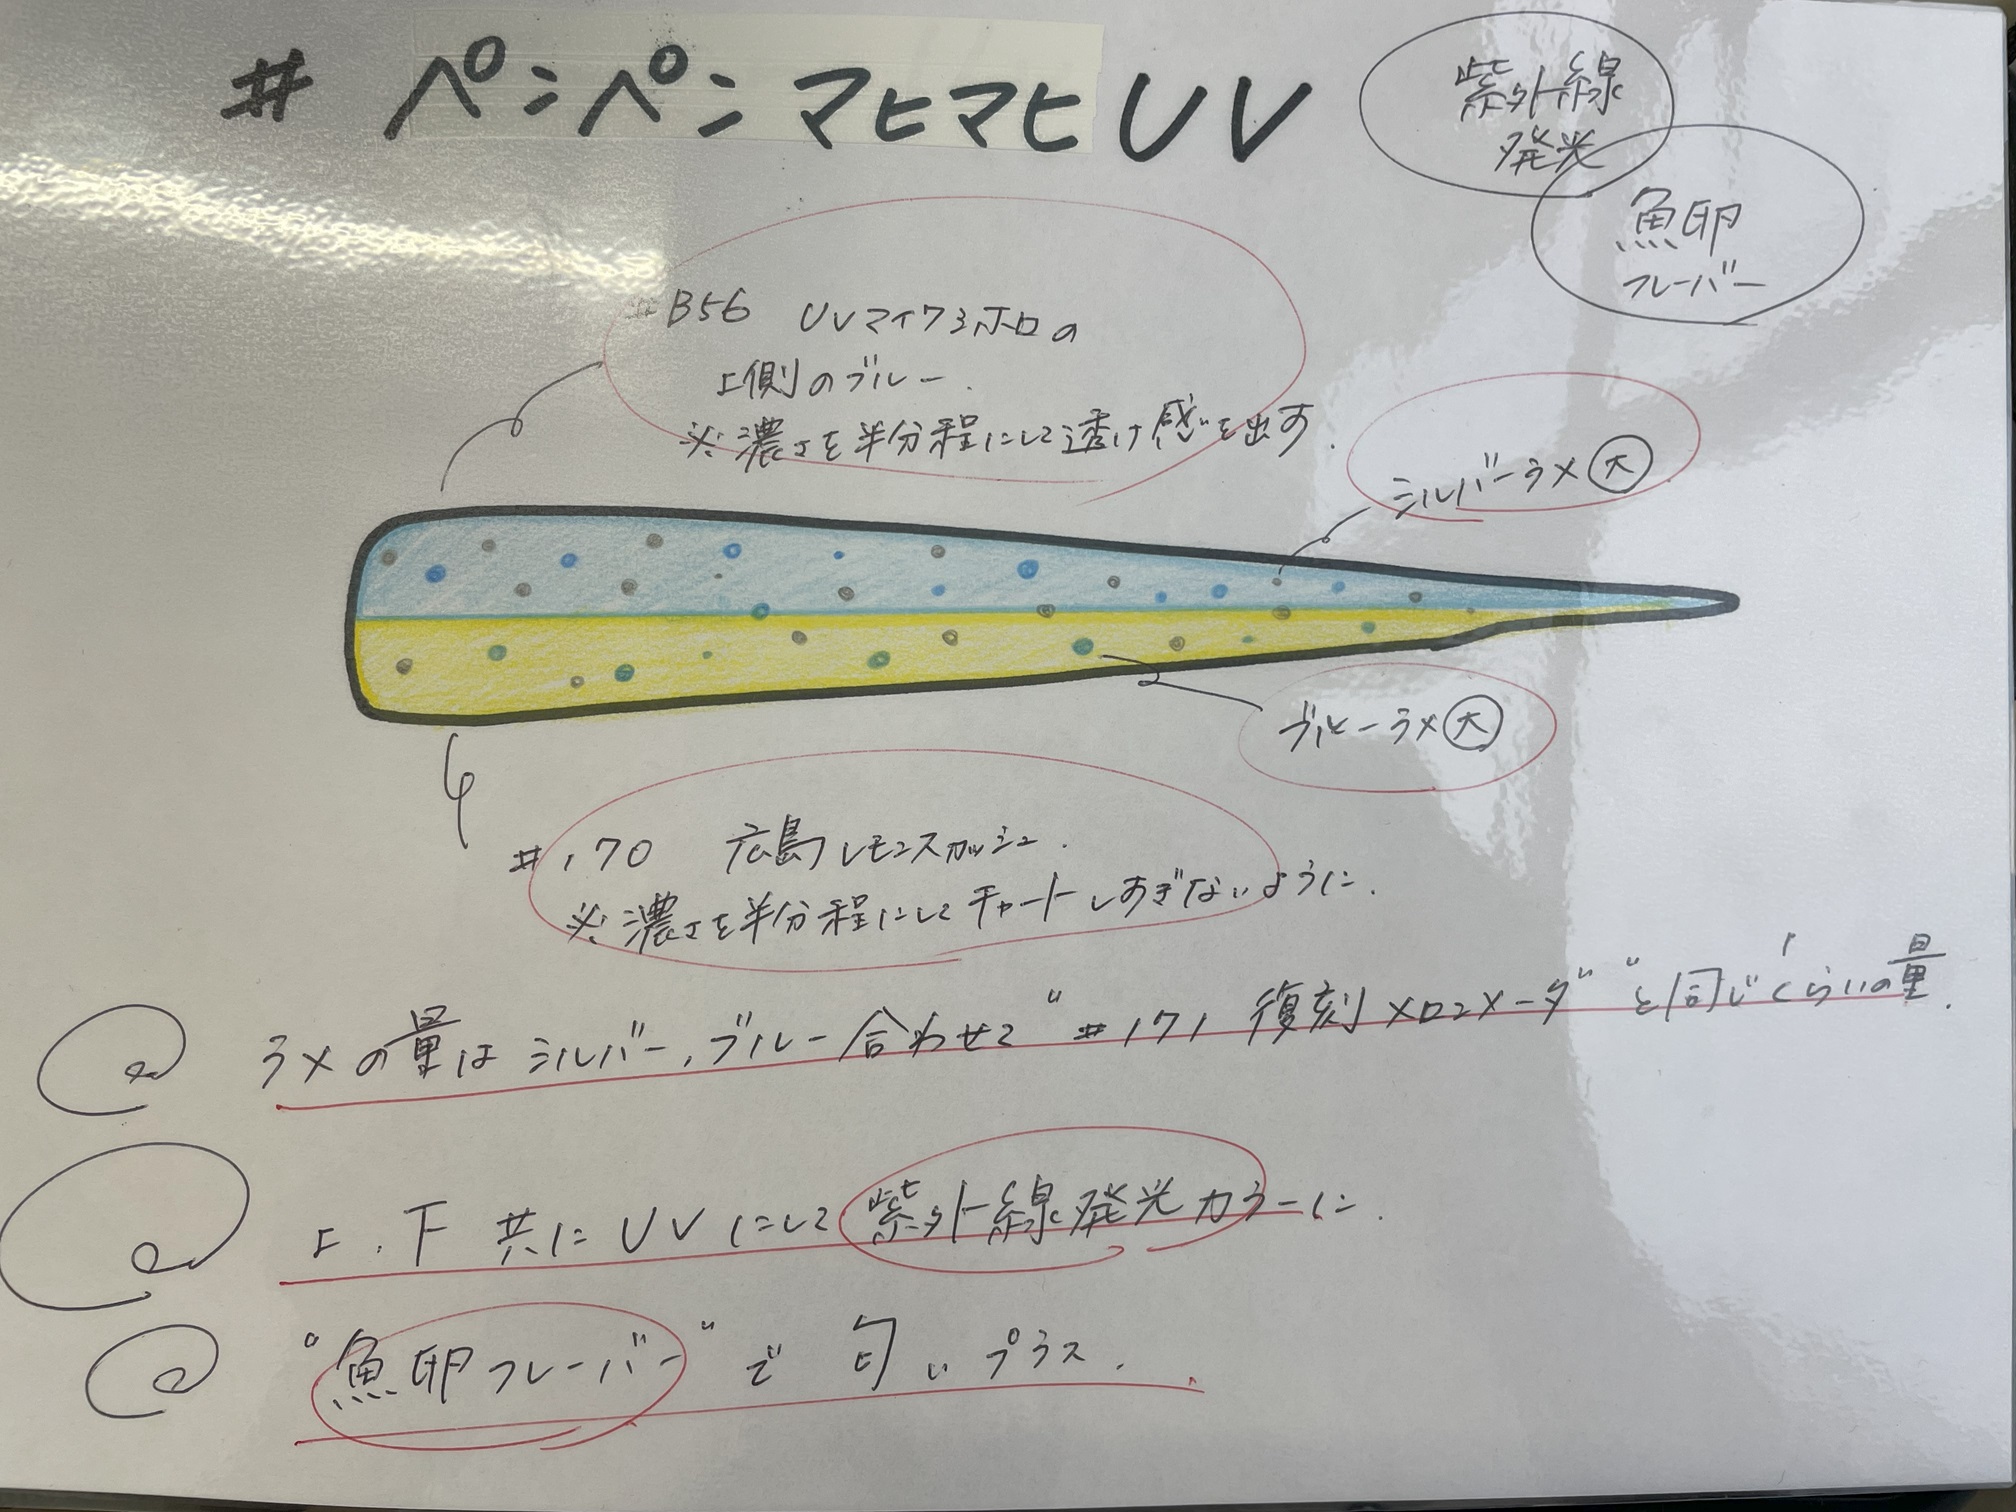 # ペンペンマヒマヒUV
紫外線
発光
魚卵
フレーバー
#B56 UVマイクロホロの
上側のブルー.
※濃さを半分程にして透け感を出す.
シルバーラメ大
ブルーラメ大
#170 広島レモンスカッシュ.
※濃さを半分程にしてチャートしすぎないように.
ラメの量はシルバー,ブルー合わせて"#171 復刻メロンメーダ"と同じくらいの量.
上.下共にUVにして紫外線発光カラーに.
"魚卵フレーバー"で匂いプラス.